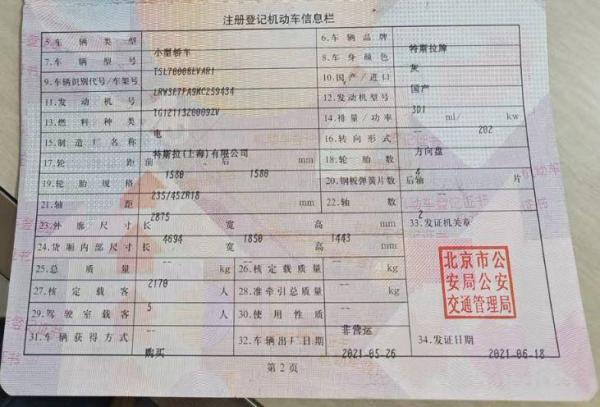 注册登记机动车信息栏
5.车辆类型 小型轿车 6.车辆品牌 特斯拉牌
7.车辆型号 TSL7000BEVAR1 8.车身颜色 灰
9.车辆识别代号/车架号 LRW3E7FA9MC259434 10.国产/进口 国产
11.发动机号 TG121132G009ZV 12.发动机型号 3D1
13.燃料种类 电 14.排量/功率 -- ml/ 202 kw
15.制造厂名称 特斯拉(上海)有限公司 16.转向形式 方向盘
17.轮距 前 1580 后 1580 mm 18.轮胎数 4
19.轮胎规格 235/45ZR18 20.钢板弹簧片数 后轴 -- 片
21.轴距 2875 mm 22.轴数 2
23.外廓尺寸 长 4694 宽 1850 高 1443 mm 33.发证机关章
24.货厢内部尺寸 长 -- 宽 -- 高 -- mm
25.总质量 2170 kg 26.核定载质量 -- kg
27.核定载客 5 人 28.准牵引总质量 -- kg
29.驾驶室载客 -- 人 30.使用性质 非营运
31.车辆获得方式 购买 32.车辆出厂日期 2021-05-26 34.发证日期 2021-06-18
北京市公
安局公安
交通管理局
第2页